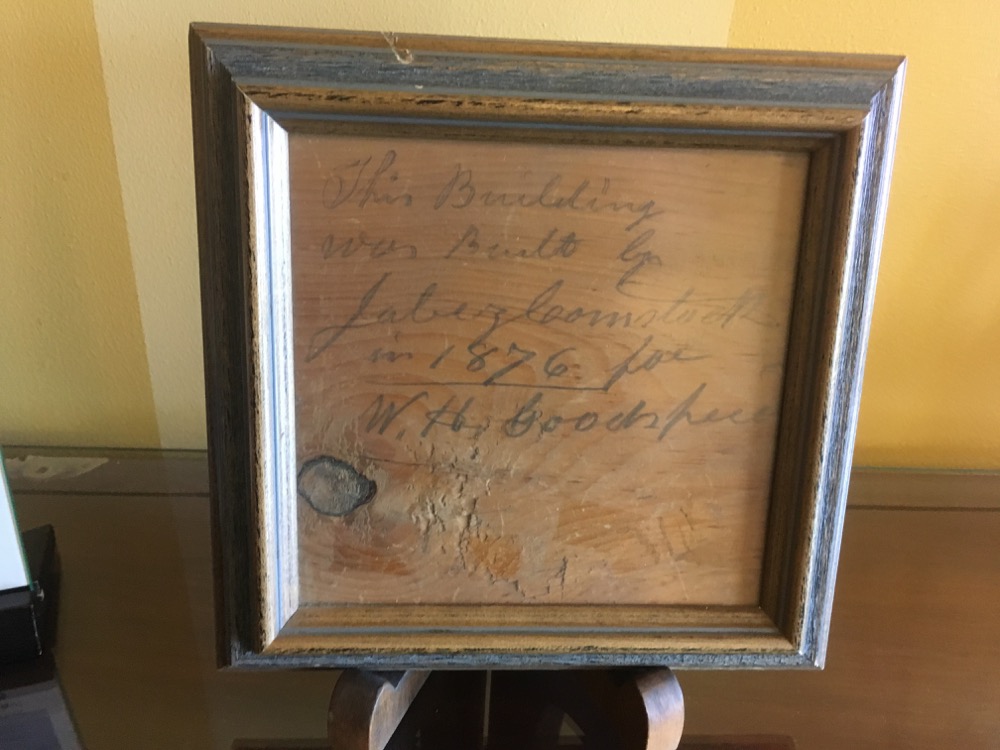 This Building
was Built by
Jabez Comstock
in 1876 for
W. H. Goodspeed